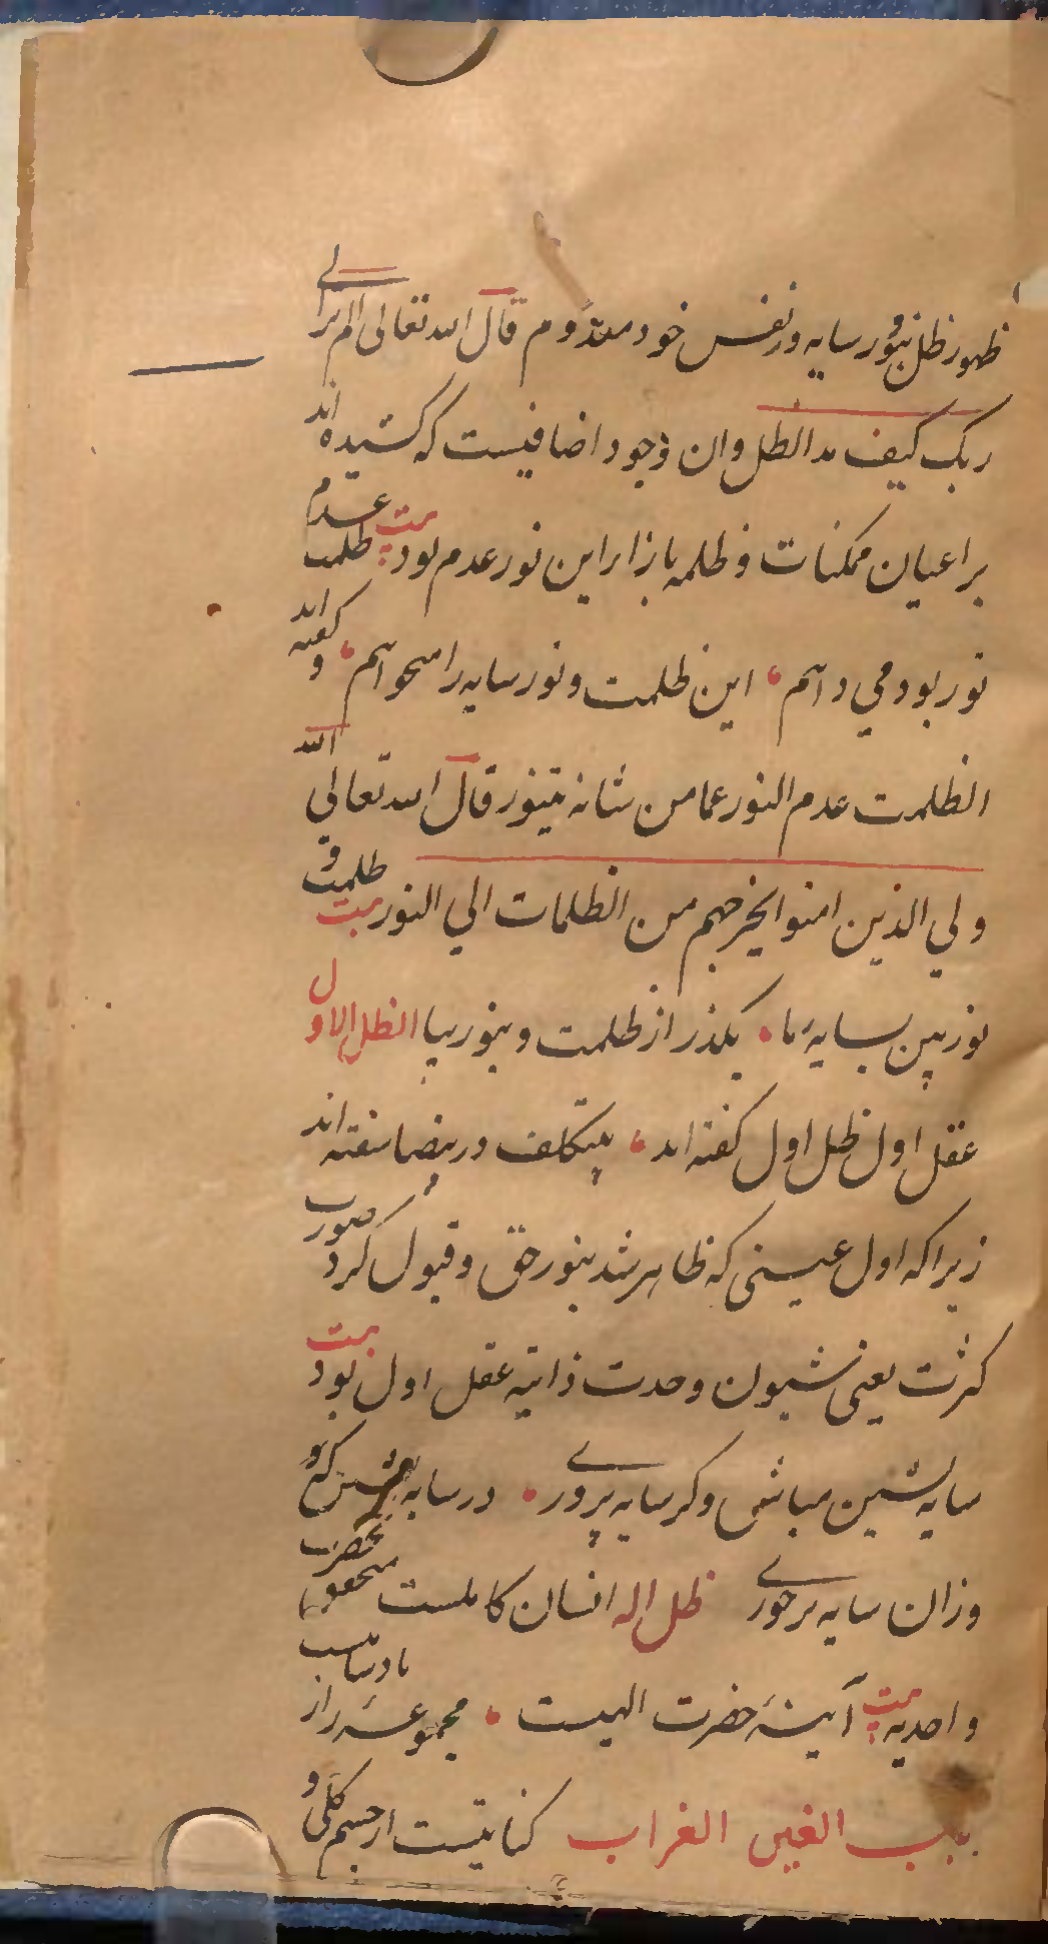 ظهور ظل بنور و سایه در نفس خود معدوم قال الله تعالی الم تر الی
ربک کیف مد الظل وان وجود اضافیست که کشیده اند
بر اعیان ممکنات و ظلمه بازار این نور عدم بود بیت ظلمت عدم
نور بود می دانم این ظلمت و نور سایه را میخوانم و کفته اند
الظلمت عدم النور عما من شانه یتنور قال الله تعالی الله
ولی الذین امنوا یخرجهم من الظلمات الی النور بیت ظلمت و
نور بین بسایه ما بکذر از ظلمت و بنور بیا الظل الاول
عقل اول ظل اول کفته اند بیتکلف در بیضا سفته اند
زیرا که اول عینی که ظاهر شد بنور حق و قبول کرد صورت
کثرت یعنی شیون وحدت ذاتیه عقل اول بود بیت
سایه نشین مباش و کر سایه پروری در سایه نشین که تو
وزان سایه برخوری ظل اله انسان کاملست متحقق بحضرت
واحدیه بیت آیینهٔ حضرت الهیست مجموعهٔ راز
باب الغین الغراب کنایتست از جسم کلی و